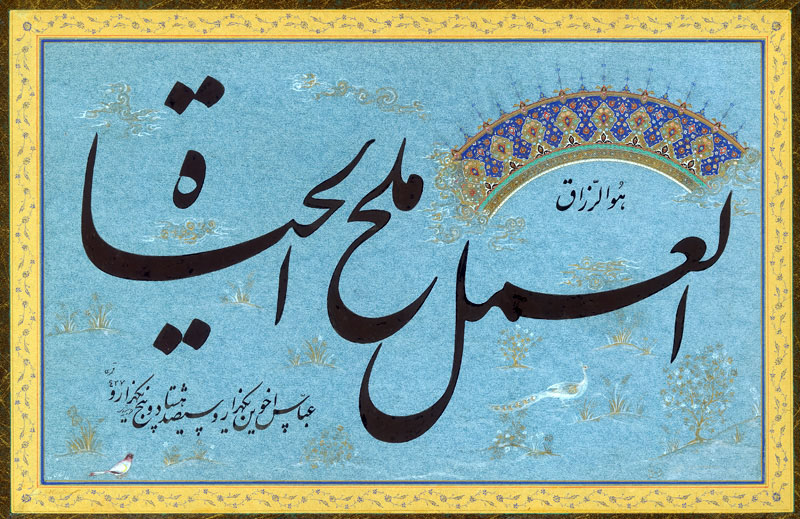 هُوَ الرَّزاق
العمل ملح الحياة
عباس اخوین یکهزار و سیصد هشتاد و پنج یکهزار و
۴۲۷